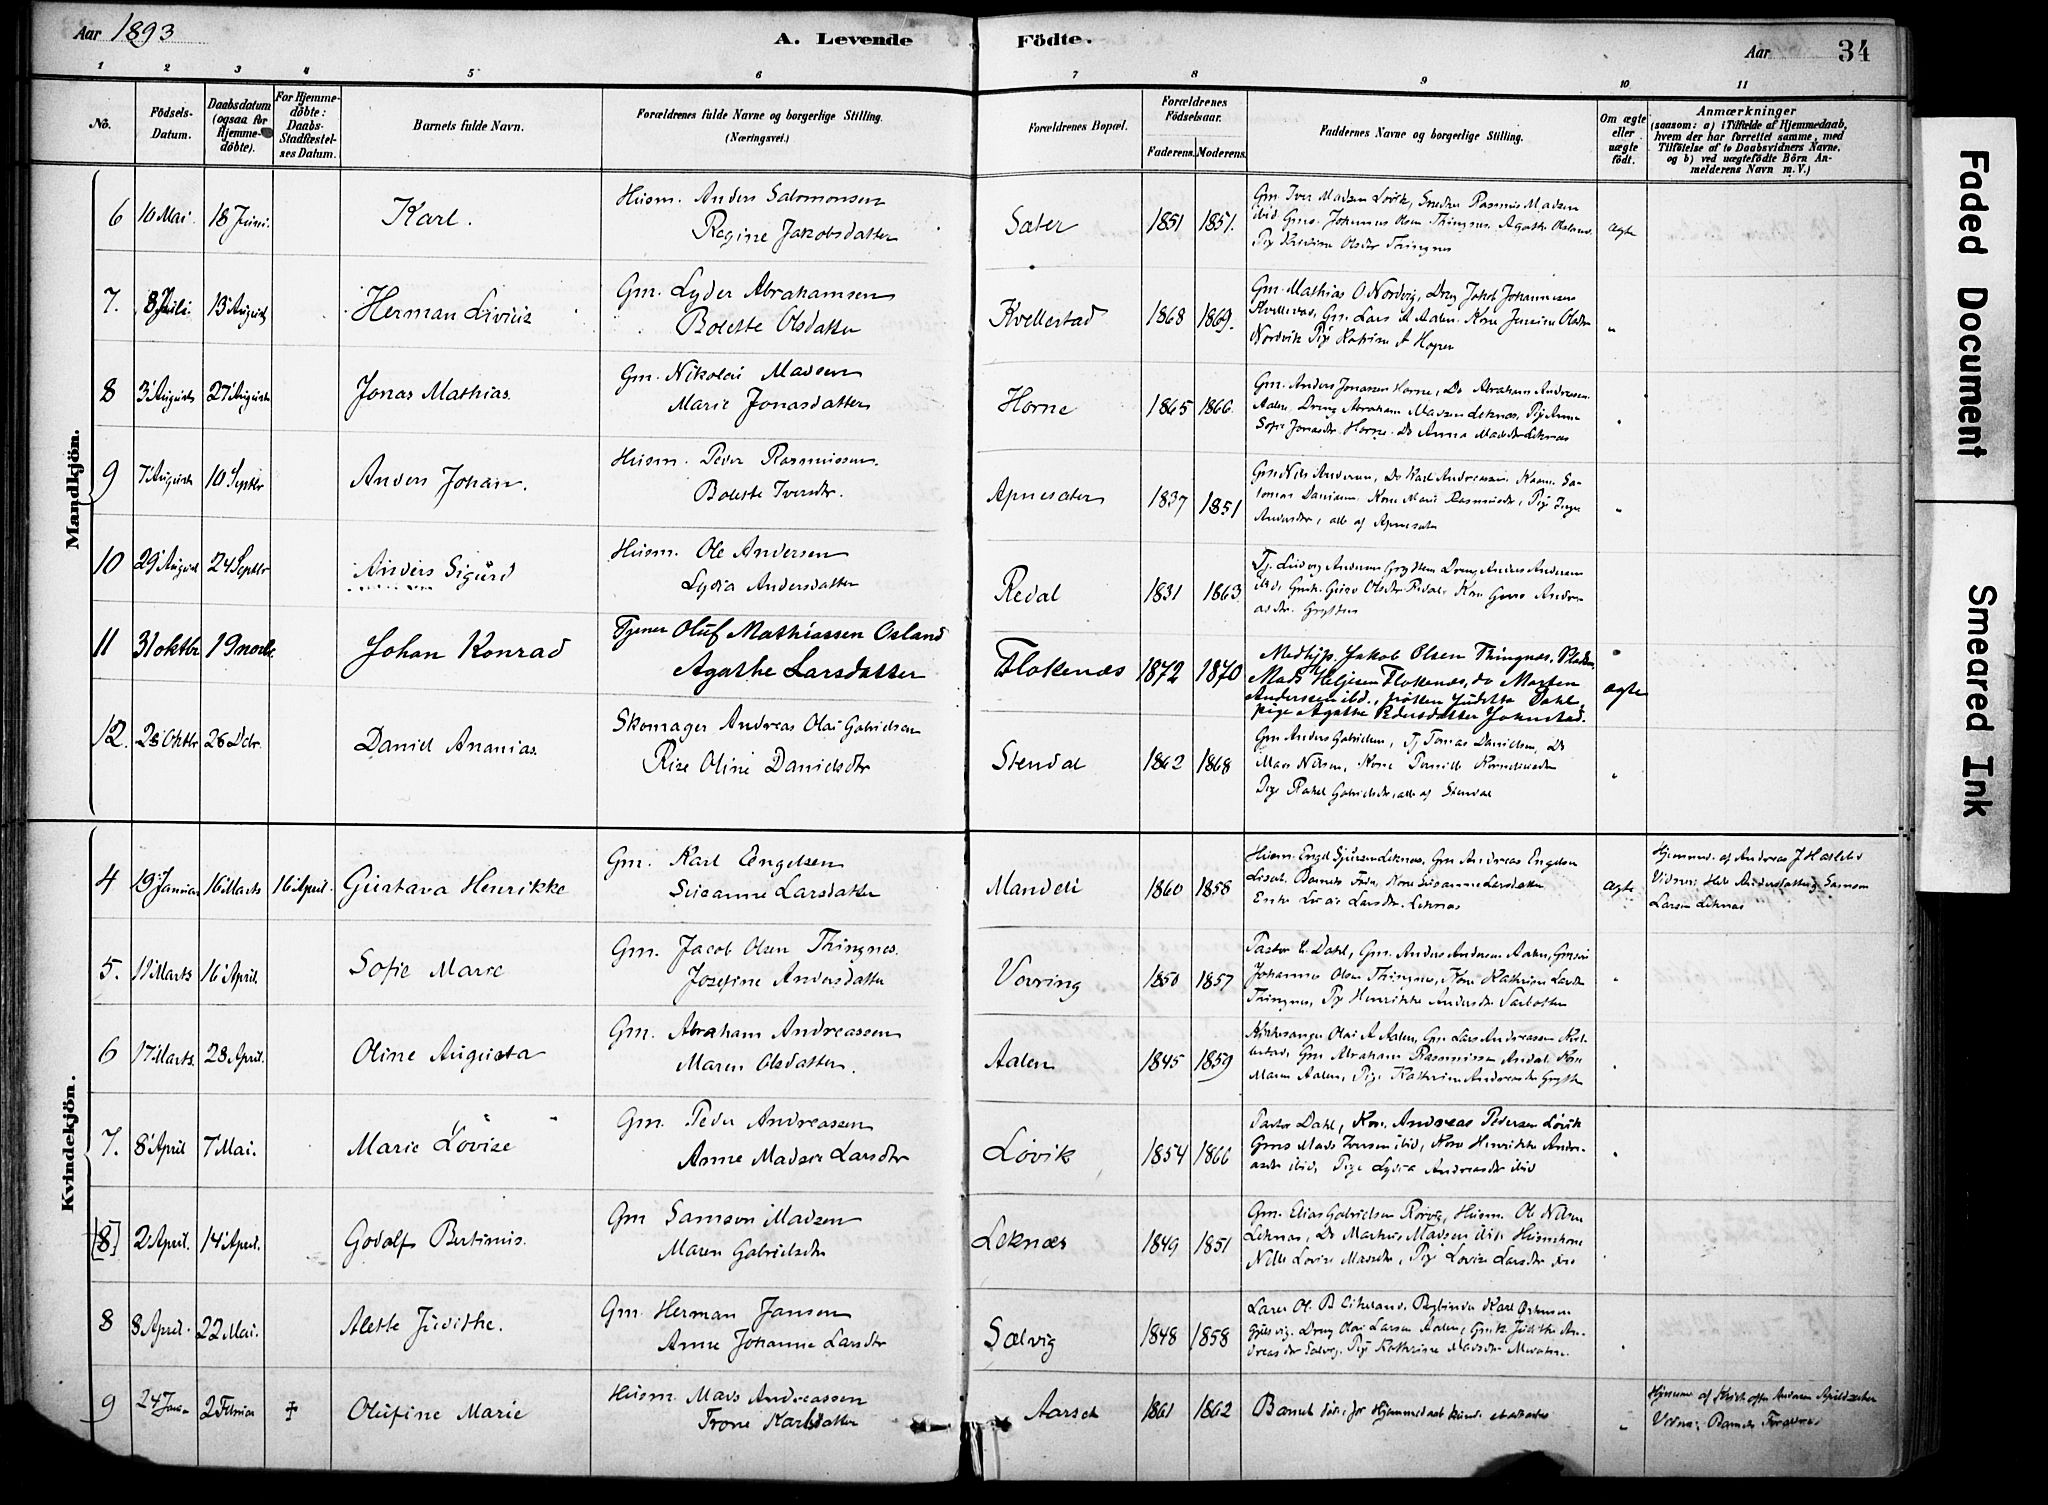 Aar 1893
A. Levende Födte.
Aar 34
1 2 3 4 5 6 7 8 9 10 11
Nô.
Födsels-Datum.
Daabsdatum (ogsaa for Hjemmedöbte).
For Hjemmedöbte: Daabs-Stadfæstelses Datum.
Barnets fulde Navn.
Forældrenes fulde Navne og borgerlige Stilling. (Næringsvei.)
Forældrenes Bopæl.
Forældrenes Födselsaar.
Faderens. Moderens.
Faddernes Navne og borgerlige Stilling.
Om ægte eller uægte födt.
Anmærkninger
(saasom: a) i Tilfælde af Hjemmedaab, hvem der har forrettet samme, med Tilföielse af to Daabsvidners Navne, og b) ved uægtefödte Börn Anmelderens Navn m. V.)
Mandkjön.
6 10 Mai. 18 Juni. Karl. Husm. Anders Salomonsen
Regine Jakobsdatter Sæter 1851 1851. ægte
Gm Iver Madsen Lövik, Rasmus Madsen
ibid Johannes Olsen Thingnes, Agathe
Thingnes
7. 8 Juli. 13 August Herman Livius Gm. Lyder Abrahamsen
Bolette Olsdatter Kvellestad 1868 1869. "
Gm. Mathias O Nordvig, Dreng Jakob Johannesen
Kvellestad, Gm. Lars A Aalen. Kone Olsdtr
Nordvik Pige A
8 3 August 27 August Jonas Mathias. Gm. Nikolai Madsen
Marie Jonasdatter Horne 1865 1866.
Gm. Anders Jonassen Horne, Do Abraham Andreassen
Aalen, Dreng Abraham Madsen Leknæs, Pige Anne
Sofie Jonasdtr. Horne. Do Anna Madsdtr Leknæs
9 7 August 10 Septbr Anders Johan. Husm. Peder Rasmussen.
Bolette Iversdtr. Apnesæter 1837 1851 "
Gm. Nils Andersen, Do Karl Andreassen
Kone Marie Rasmusdtr, Pige
Andersdtr, alle af Apnesæter
10 29 August 24 Septbr Anders Sigurd Husm. Ole Andersen
Lydia Andersdatter Redal 1831 1863
Tj. Ludvig Andersen Grytten Dreng Anders Andersen
Olsdtr Redal. Kone Andre-
asdtr. Grytten
11 31 oktbr 19 novbr. Johan Konrad Tjener Oluf Mathiassen Osland
Agathe Larsdatter Flokenæs 1872 1870 ægte
Medhjp. Jakob Olsen Thingnes,
Mads Heljesen Flokenæs, do Morten
Anderssen ibid., frøken Juditta Dahl,
pige Agathe Pedersdatter
12. 28 Oktbr 26 Dcbr. Daniel Ananias. Skomager Andreas Olai Gabrielsen
Rise Oline Danielsdtr Stendal 1862 1868 "
Gm Anders Gabrielsen, Tj Tomas Danielsen, Do
Mads Nilsen, Kone Pernille Korneliusdtr
Pige Rakel Gabrielsdtr, alle af Stendal
Kvindekjön.
4 19 Januar 16 Marts 16 April. Gustava Henrikke Gm. Karl Engelsen
Susanne Larsdatter Mandeli 1860 1858 ægte
Husm. Engel Sjursen Leknæs, Gm Andreas Engelsen
Barnets Fader, Kone Susanne Larsdatter
Enke Larsdtr. Leknæs
Hjemmed. af Andreas J
Vidner: Andersdatter og Samson
Larsen Leknæs
5. 11 Marts 16 April. Sofie Marie Gm. Jacob Olsen Thingnes.
Josefine Andersdatter Vevring 1850 1857 "
Pastor C. Dahl, Gm. Anders Andersen Aalen,
Johannes Olsen Thingnes, Kone Kathrine Larsdtr
Thingnes, Pige Henrikke Andersdtr
6 17 Marts. 23 April. Oline Augusta Gm. Abraham Andreassen
Maren Olsdatter. Aalen 1845 1859
Kirkesanger Olai A Aalen, Gm Lars Andreassen
Gm Abraham Rasmussen Kone
Maren Aalen, Pige Kathrine Andreasdtr Grytten
7. 8 April 7 Mai. Marie Lovise Gm. Peder Andreassen
Anne Madsine Larsdtr Lövik 1854 1866
Pastor Dahl, Andreas Pedersen Lövik
Mads Iversen ibid, Kone Henrikke Andre-
asdtr ibid, Pige Lydia Andreasdtr ibid
[8] 2 April. 14 April. Godalf Bertinus. Gm Samson Madsen
Maren Gabrielsdtr Leknæs 1849 1851
Gm. Elias Gabrielsen Rörvig, Husm. Ole Nilsen
Leknæs, Do Markus Madsen ibid Husmkone
Lovise Madsdtr, Pige Lovise Larsdtr ibid
8 8 April. 22 Mai. Alette Judithe. Gm. Herman Jansen
Anne Johanne Larsdtr Sælvig 1848 1858
Lærer Ol. B. Eikeland. Bogbinder Karl
Dreng Olai Larsen Aalen, Gmk. Judithe An-
dreasdtr Sælvig. Pige Kathrine Madsdtr
9 24 Januar 2 Februar ✝ Olufine Marie Husm. Mads Andreassen
Trone Karlsdatter Aarset 1861 1862 "
Barnet døde før Hjemmedaab kunde stadfæstes
Hjemmed. af Kristoffer Andersen
Vidner: Barnets Forældre
Faded Document
Smeared Ink